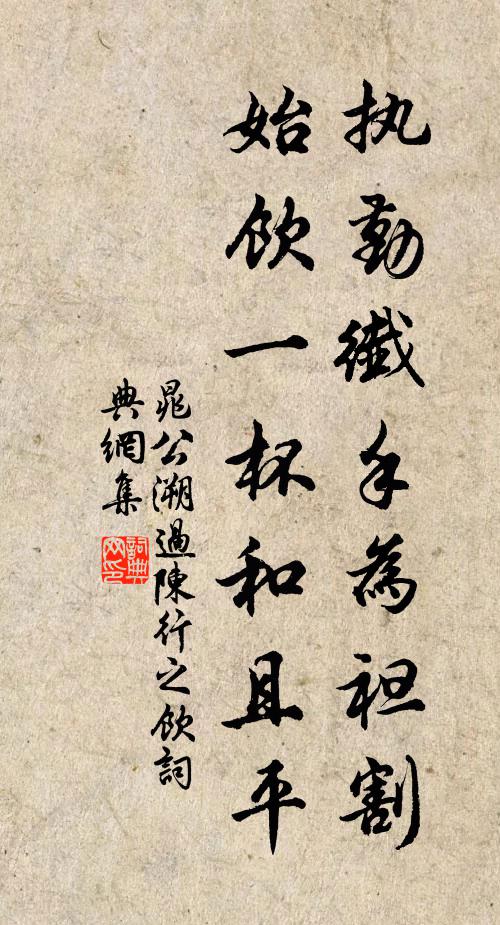 执勤纖手為袒割
始飲一杯和且平
晁公溯過陳行之飲詞
典網集
詞典
网印